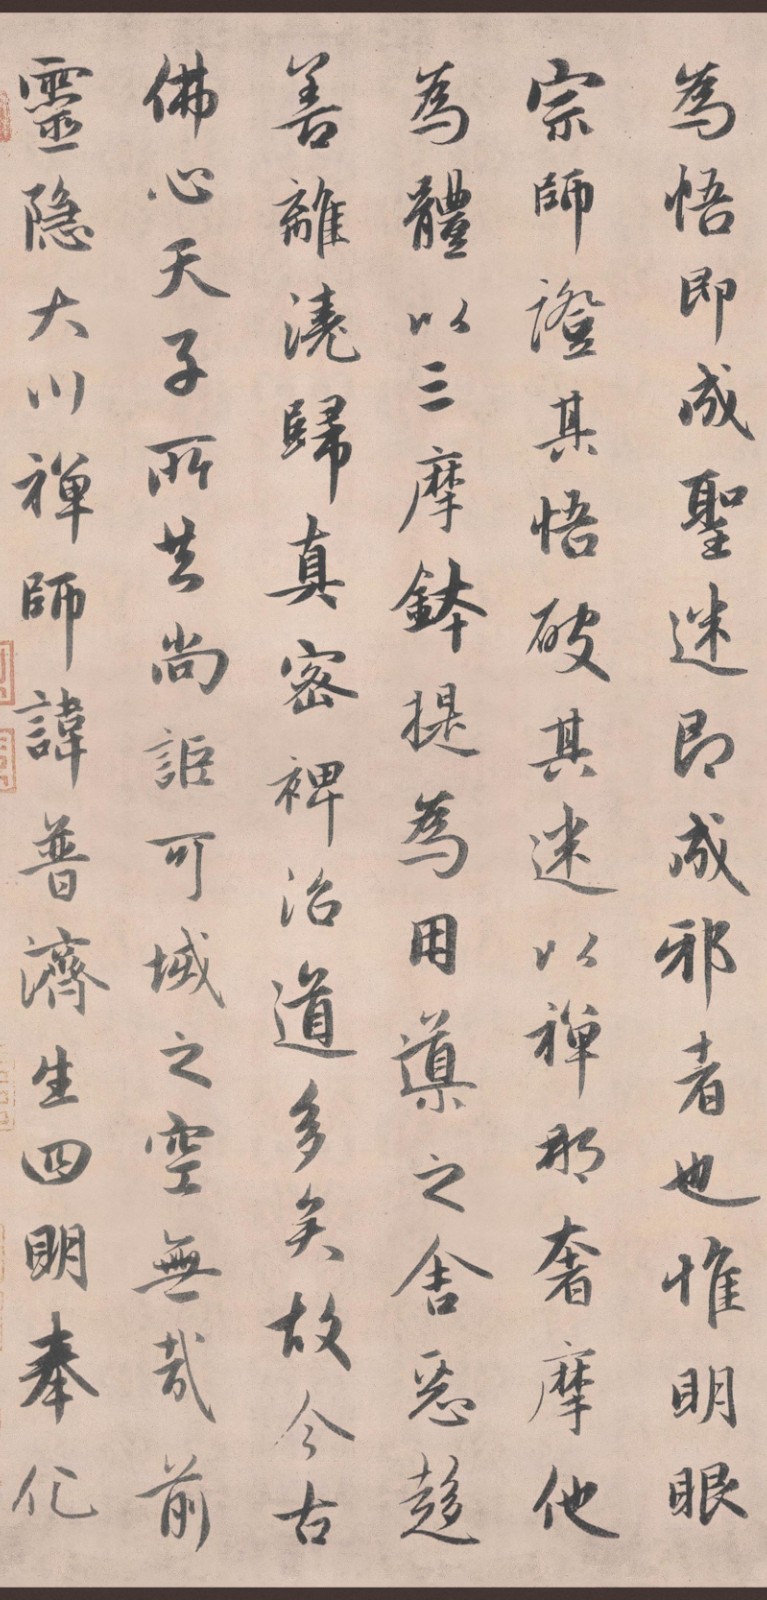 為悟即成聖迷即成邪者也惟明眼
宗師證其悟破其迷以禅那奢摩他
為體以三摩鉢提為用導之舍惡趍
善離澆歸真密裨治道多矣故今古
佛心天子所共尚詎可域之空無哉前
靈隐大川禅師諱普濟生四明奉化